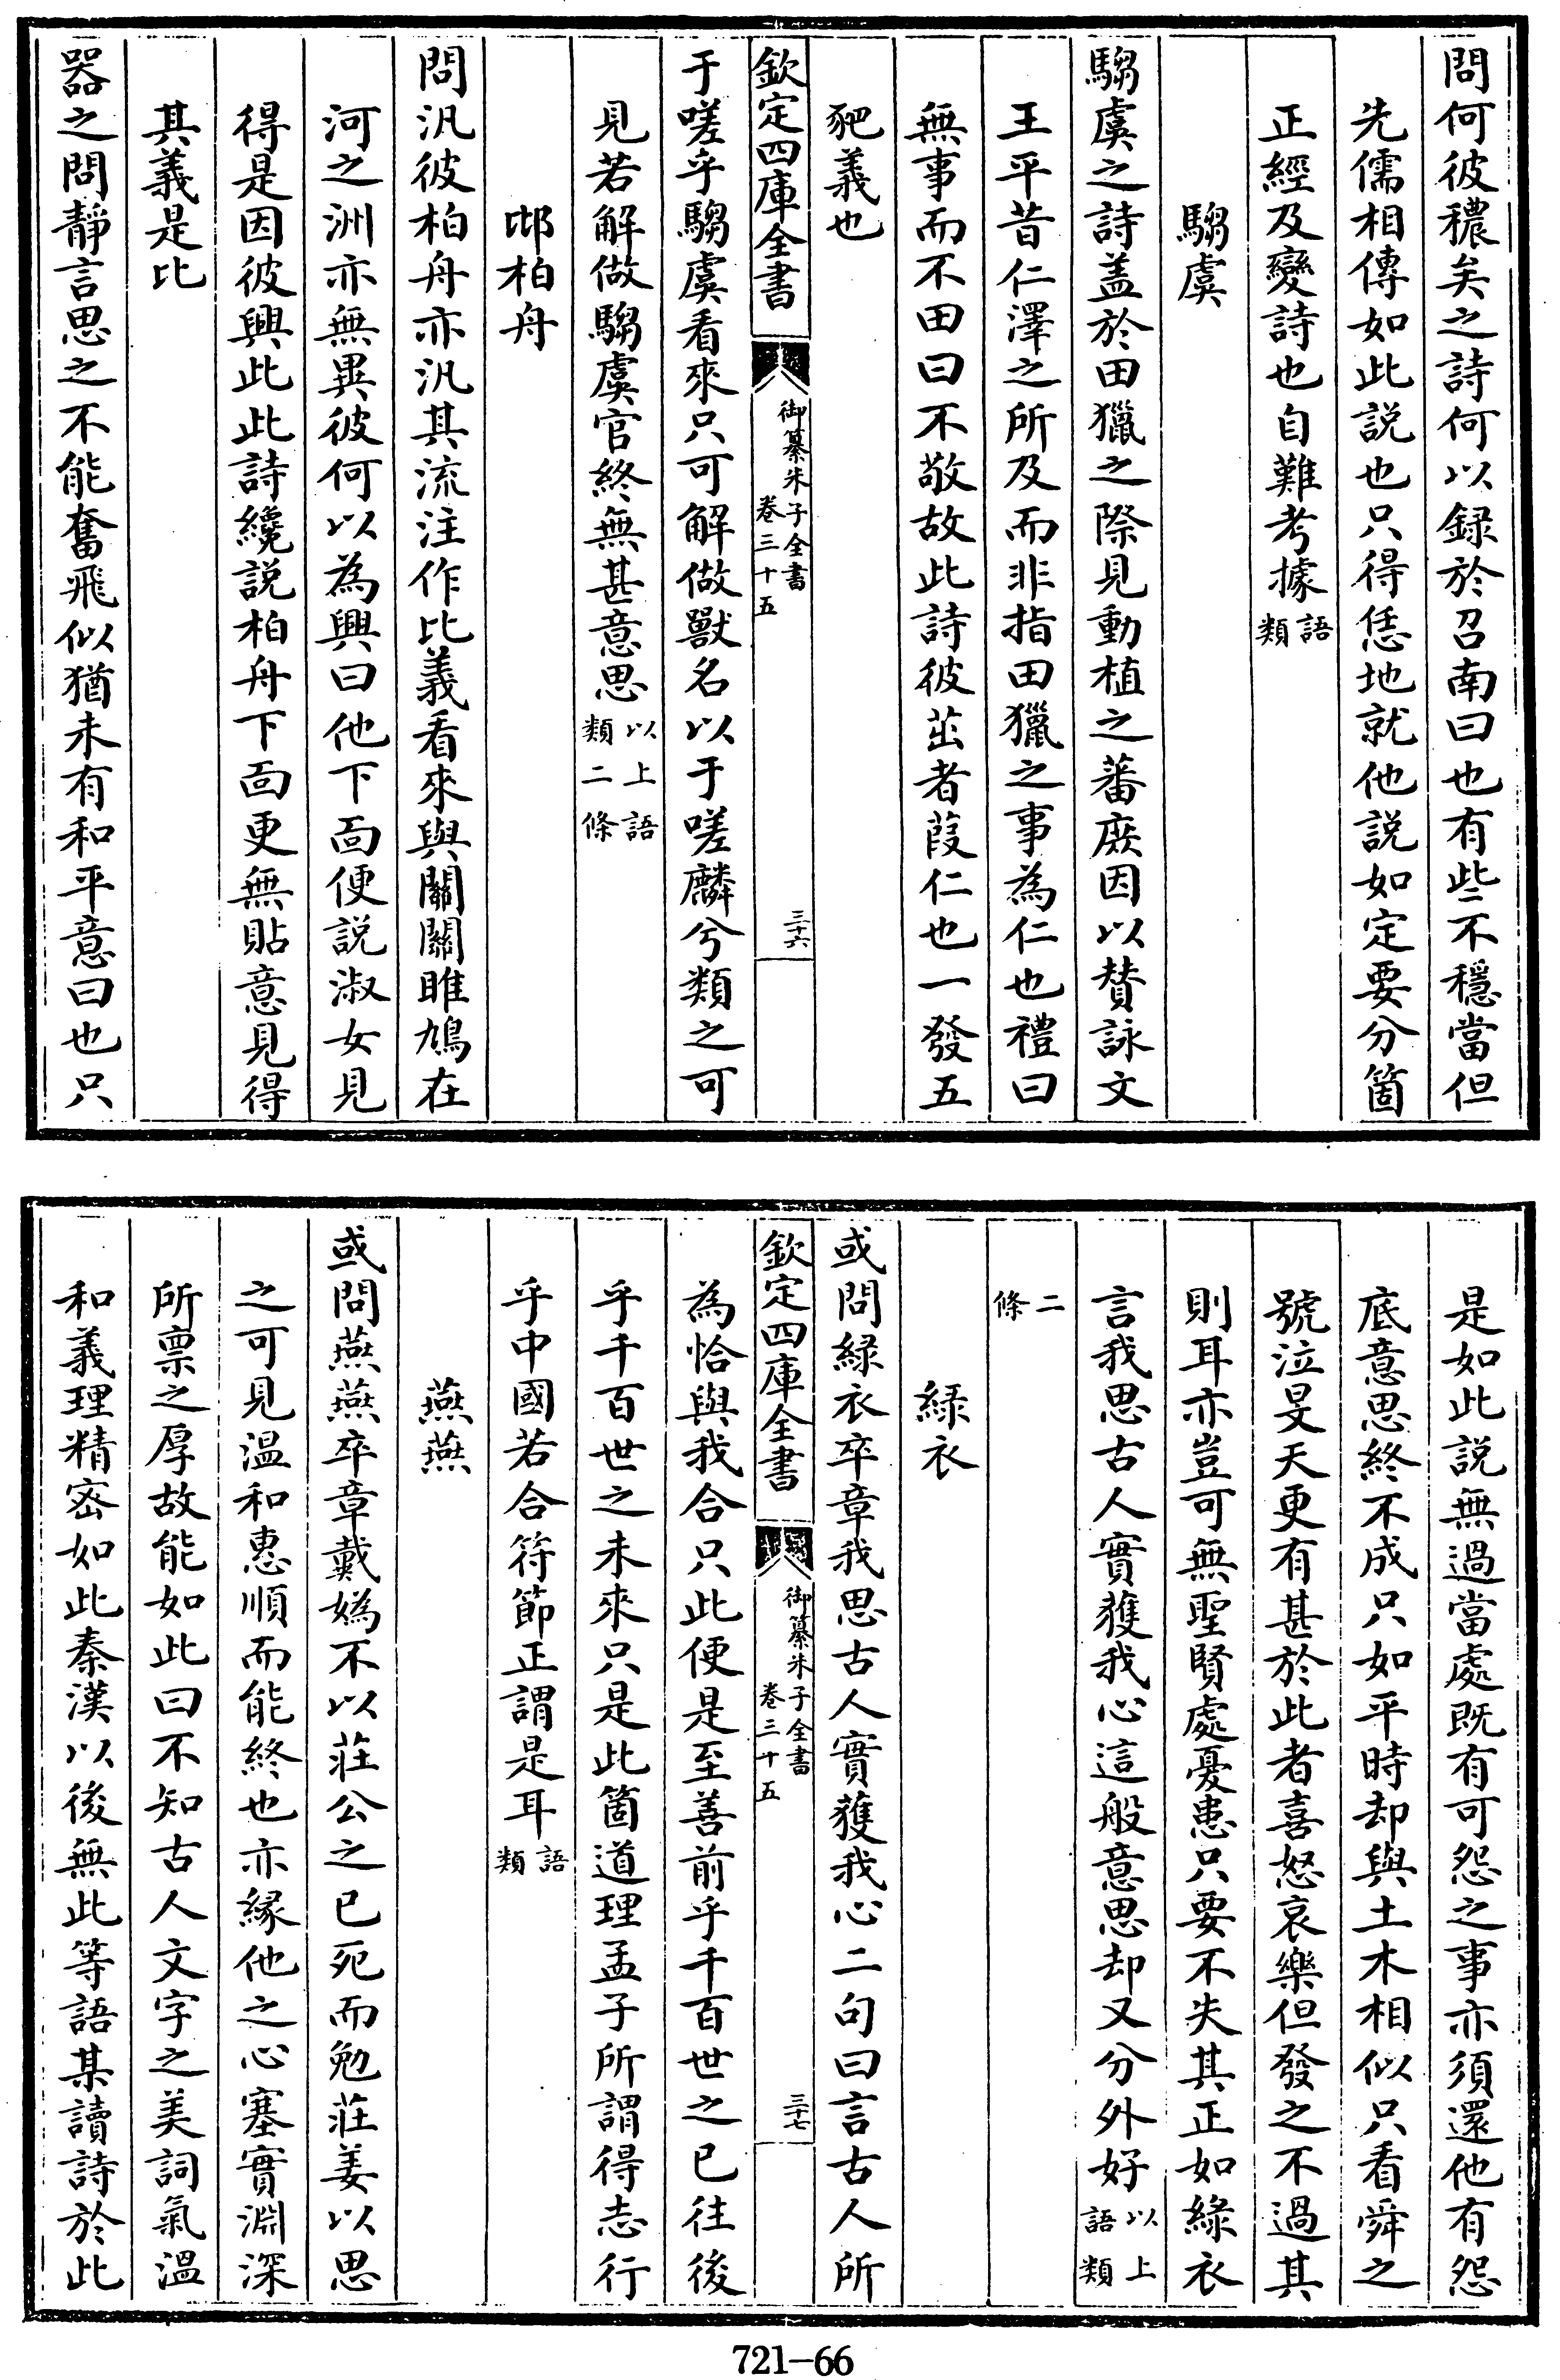 問何彼穠矣之詩何以録於召南曰也有些不穩當但
先儒相傳如此説也只得恁地就他説如定要分箇
正經及變詩也自難考據語類
騶虞
騶虞之詩盖於田獵之際見動植之蕃庶因以賛詠文
王平昔仁澤之所及而非指田獵之事為仁也禮曰
無事而不田曰不敬故此詩彼茁者葭仁也一發五
豝義也
欽定四庫全書
御纂朱子全書
卷三十五
三十六
于嗟乎騶虞看來只可解做獸名以于嗟麟兮類之可
見若解做騶虞官終無甚意思以上語類二條
邶柏舟
問汎彼柏舟亦汎其流注作比義看來與關關雎鳩在
河之洲亦無異彼何以為興曰他下面便説淑女見
得是因彼興此此詩纔説柏舟下面更無貼意見得
其義是比
器之問靜言思之不能奮飛似猶未有和平意曰也只
是如此説無過當處既有可怨之事亦須還他有怨
底意思終不成只如平時却與土木相似只看舜之
號泣旻天更有甚於此者喜怒哀樂但發之不過其
則耳亦豈可無聖賢處憂患只要不失其正如綠衣
言我思古人實獲我心這般意思却又分外好以上語類
二條
綠衣
或問綠衣卒章我思古人實獲我心二句曰言古人所
欽定四庫全書
御纂朱子全書
卷三十五
三十七
為恰與我合只此便是至善前乎千百世之已往後
乎千百世之未來只是此箇道理孟子所謂得志行
乎中國若合符節正謂是耳語類
燕燕
或問燕燕卒章戴媯不以莊公之已死而勉莊姜以思
之可見温和惠順而能終也亦縁他之心塞實淵深
所禀之厚故能如此曰不知古人文字之美詞氣温
和義理精宻如此秦漢以後無此等語某讀詩於此
721-66